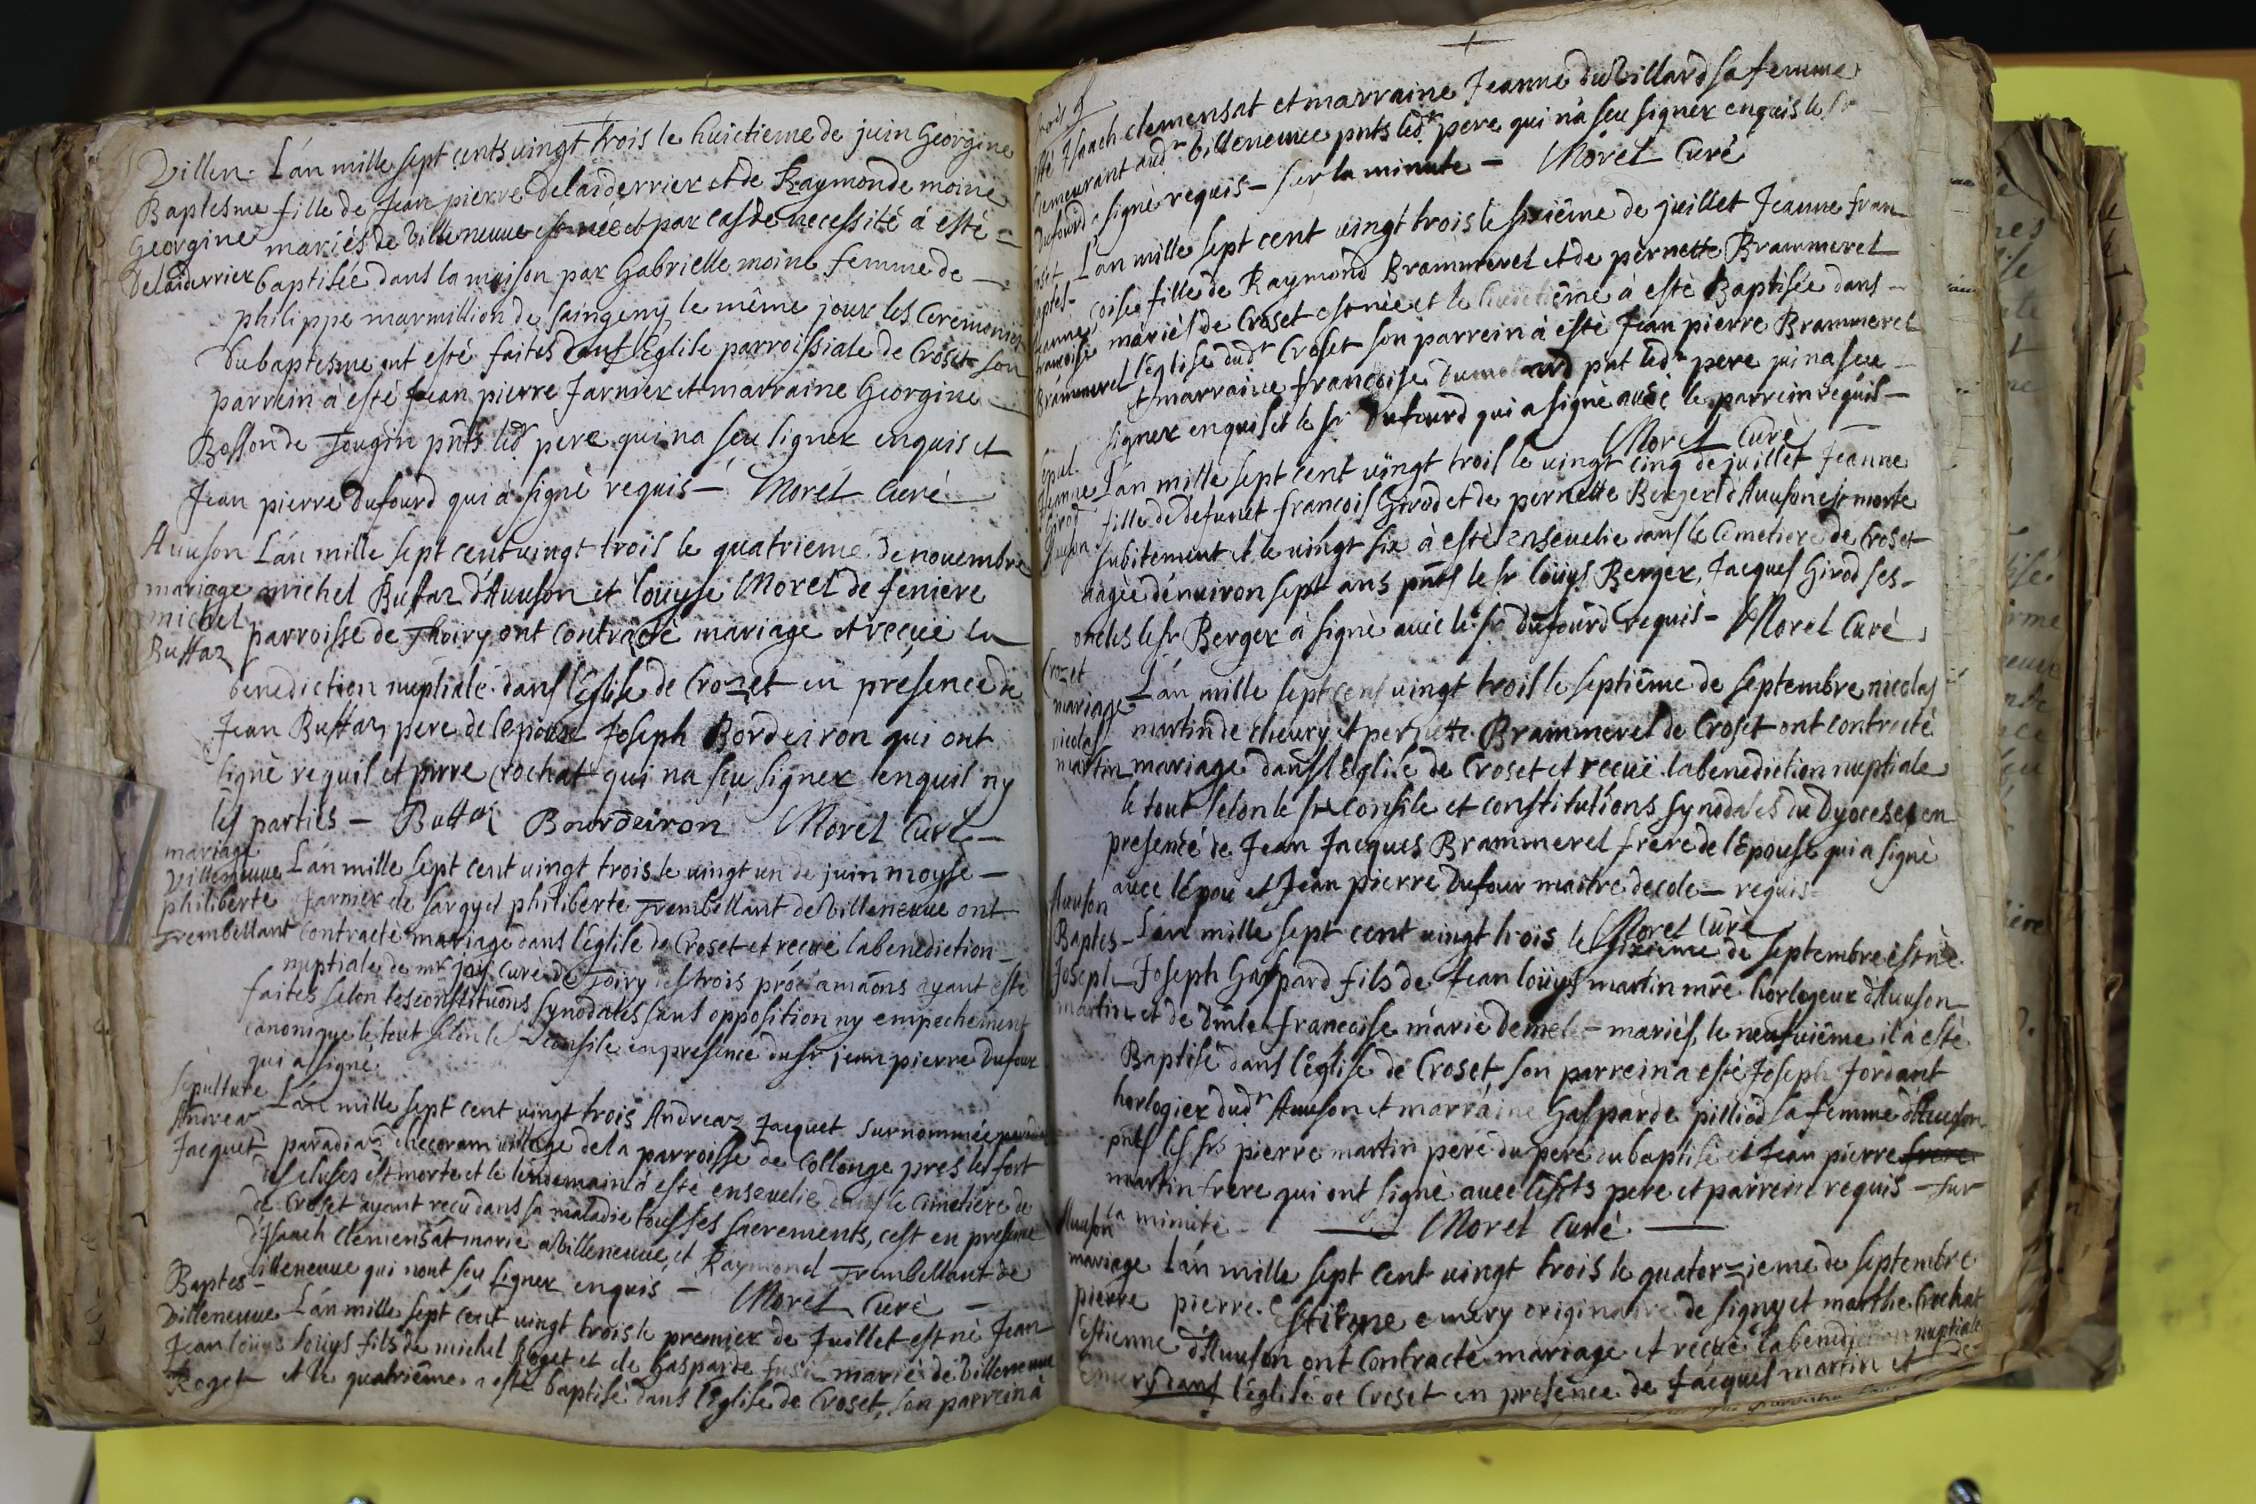 Villen. L'an mille sept cents vingt trois le huictieme de juin Georgine
Baptesme fille de Jean pierre delaiderrier et de Raymonde moine
Georgine mariés de Villeneuve est née et par cas de necessité á esté
delaiderrier baptisée dans la maison par Gabrielle moine femme de
philippe marmillion de saingeny le même jour les Ceremonies
du baptesme ont esté faites dans l'Eglise parroissiale de Croset son
parrein à esté Jean pierre Jarnier et marraine Georgine
Bosson de Tougin pnts led.r pere qui na seu signer enquis et
Jean pierre Dufourd qui à signé requis - Morel Curé
Avuson L'an mille sept cent vingt trois le quatrieme de novembre
mariage michel Buffaz d'Avuson et loüyse Morel de feniere
michel parroisse de Thoiry ont contracté mariage et reçüe la
Buffaz
benediction nuptiale dans l'Eglise de Crozet en présence de
Jean Buffaz pere de lepoux Joseph Bordeiron qui ont
signé requis et pierre Crochat qui na seu signer enquis ny
les parties - Buffaz Bourdeiron Morel Curé -
mariage
Villeneuve L'an mille sept cent vingt trois le vingt un de juin moyse -
philiberte Jarnier de sargy et philiberte Trembellant de Villeneuve ont
Trembellant Contracté mariage dans l'église de Croset et reçuë la benediction
nuptiale de mr jay Curé de Toiry les trois proclamãons ayant esté
faites selon les constitutions synodales sans opposition ny empechement
canonique le tout selon le st consile en presence du sr jean pierre Dufour
qui a signé.
sepulture L'an mille sept cent vingt trois Andreaz Jacquet surnommée
Andreaz
Jacquet paradiaz village de la parroisse de Collonge pres le fort
des cluses est morte et le lendemain á esté ensevelie dans le Cimetiere de
de Croset ayant reçu dans sa maladie tous ses sacrements, cest en presence
d'Isaach Clemensat marié à Villeneuve, et Raymond Trembellant de
Villeneuve qui nont seu signer enquis - Morel Curé -
Baptes-
Villeneuve L'an mille sept cent vingt trois le premier de Juillet est né Jean
Jean loüys loüys fils de michel Roget et de Gasparde mariés de Villeneuve
Roget et le quatriême a esté baptisé dans l'Eglise de Croset, son parrein à
esté Isaach clemensat et marraine Jeanne du Villard sa femme
demeurant aud.r Villeneuve pnts led.r pere qui ná seu signer enquis le sr
Dufourd signé requis - sur la minute - Morel Curé
Croset L'an mille sept cent vingt trois le sixiême de juillet Jeanne fran-
Baptes-
Jeanne çoise fille de Raymond Brammerel et de pernette Brammerel
françoise mariés de Croset est née et le huictiême à esté Baptisée dans -
Brammerel l'Eglise dud.r Croset son parrein à esté Jean pierre Brammerel
et marraine françoise pnt led.r pere qui na seu
signer enquis et le sr Dufourd qui a signé avec le parrein requis -
Morel Curé
Sepul.
Jeanne L'an mille sept cent vingt trois le vingt cinq de juillet Jeanne
Girod fille de defunct françois Girod et de pernette Berger d'Avuson est morte
Avuson. subitement et le vingt six à esté ensevelie dans le Cimetiere de Croset
aagée d'énviron sept ans pnts le sr loüys Berger, Jacques Girod ses -
oncles le sr Berger à signé avec le sr Dufourd requis - Morel Curé
Crozet
mariage L'an mille sept cens vingt trois le septiême de septembre nicolas
nicolas martin de cheury et pernette Brammerel de Croset ont contracté
martin mariage dans l'Eglise de Croset et reçuë la benediction nuptiale
le tout selon le st consile et constitutions synodales du Dyoceses en
presence de Jean Jacques Brammerel frere de l'Epouse qui a signé
avec lépou et Jean pierre Dufour maitre decole - requis -
Morel Curé
Avuson
Baptes- L'an mille sept cent vingt trois le sixieme de septembre est né
Joseph Joseph Gaspard fils de Jean loüys martin mre horlogeur d'Avuson
martin et de Dmle françoise marie mariés, le neufvième il a esté
Baptisé dans l'église de Croset, son parrein a esté Joseph Jordant
horlogier dud.r Avuson et marraine Gasparde pilliod sa femme d'Avuson
pnts les srs pierre martin pere du pere du baptisé et Jean pierre frere
martin frere qui ont signé avec lesdts pere et parrein requis - sur
la minute - Morel Curé -
Avuson
mariage L'an mille sept cent vingt trois le quatorzieme de septembre
pierre pierre Estienne emery originaire de signy et marthe Crochat
Estienne d'Avuson ont Contracté mariage et reçue la benediction nuptiale
Emery dans l'église de Croset en presence de Jacques martin et de